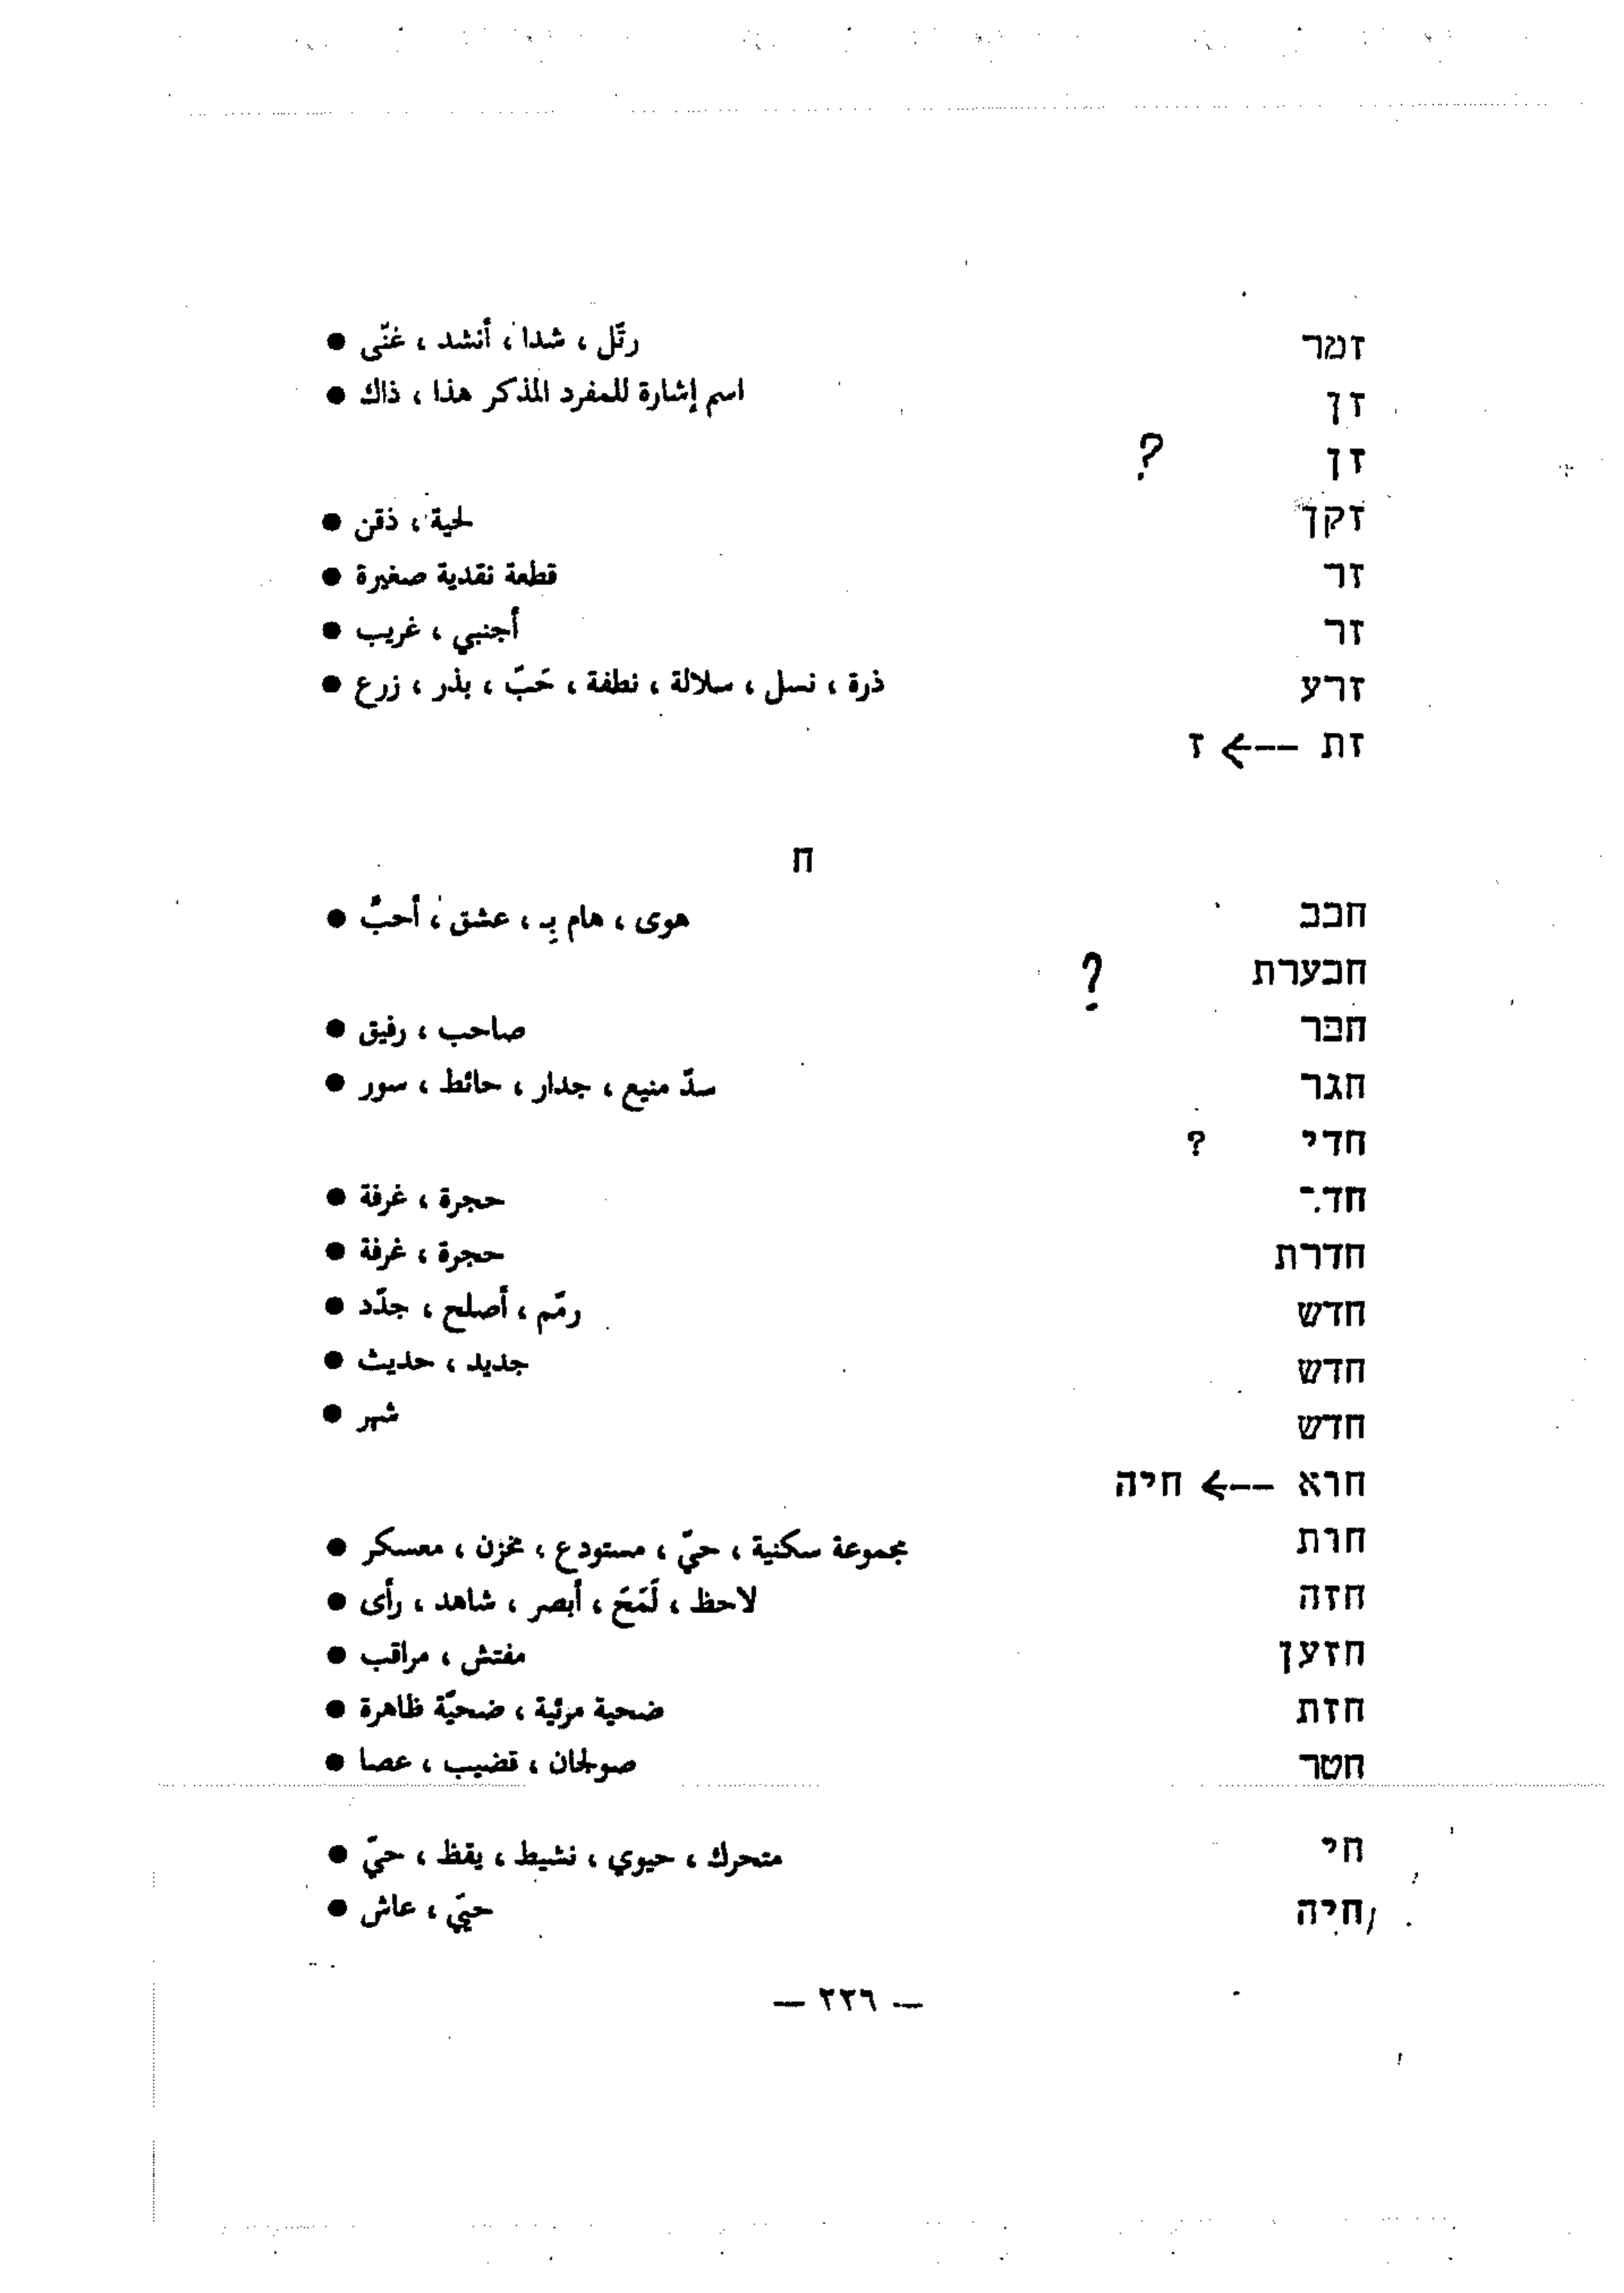 זמר رتّل ، شدا ، أنشد ، غنّى ●
זן اسم إشارة للمفرد المذكر هذا ، ذاك ●
זן ?
זקן لحية ، ذقن ●
זר قطعة نقدية صغيرة ●
זר أجنبي ، غريب ●
זרע ذرة ، نسل ، سلالة ، نطفة ، حَبّ ، بذر ، زرع ●
זת --> ז
ח
חבב هوى ، هام بِـ ، عشق ، أحبّ ●
חבערת ?
חבר صاحب ، رفيق ●
חגר سدّ منيع ، جدار ، حائط ، سور ●
חדי ?
חד.- حجرة ، غرفة ●
חדרת حجرة ، غرفة ●
חדש رمّم ، أصلح ، جدّد ●
חדש جديد ، حديث ●
חדש شهر ●
חוא --> חיה
חות مجموعة سكنية ، حيّ ، مستودع ، مخزن ، معسكر ●
חזה لاحظ ، لَمَحَ ، أبصر ، شاهد ، رأى ●
חזען مفتش ، مراقب ●
חזת ضحية مرئية ، ضحيّة ظاهرة ●
חטר صولجان ، قضيب ، عصا ●
חי متحرك ، حيوي ، نشيط ، يقظ ، حيّ ●
חיה حييّ ، عاش ●
— ٢٢٦ —